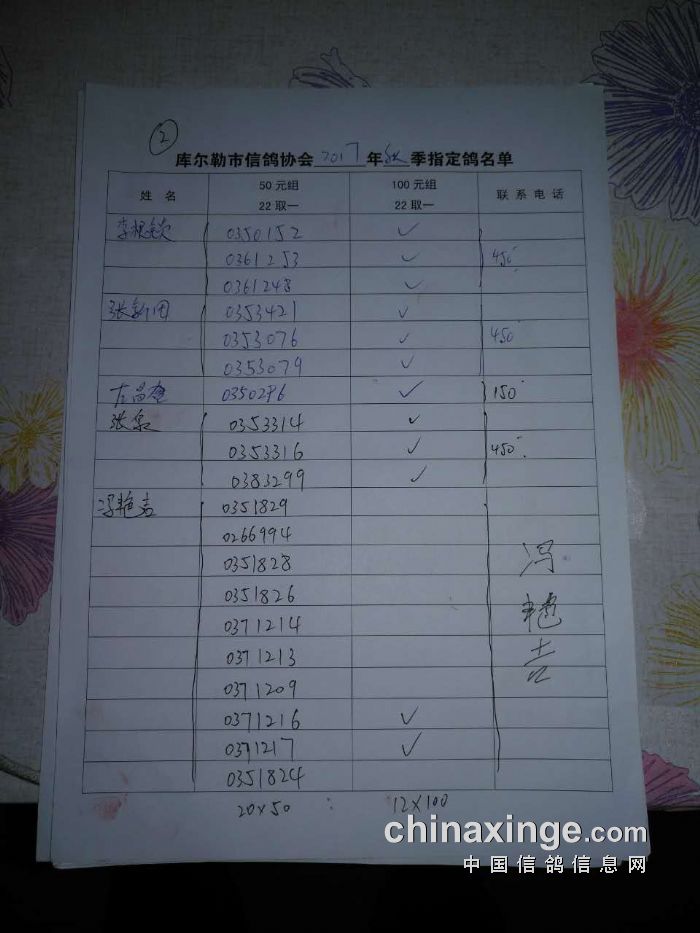 2
库尔勒市信鸽协会 2017 年 秋 季指定鸽名单
姓 名 50元组 22取一 100元组 22取一 联系电话
0350152 ✓
0361253 ✓ 450
0361248 ✓
张新国 0353421 ✓
0353076 ✓ 450
0353079 ✓
左昌奎 0350286 ✓ 150
张泉 0353314 ✓
0353316 ✓ 450
0383299 ✓
冯艳吉 0351829
0266994
0351828 冯
0351826
0371214 艳
0371213 吉
0371209
0371216 ✓
0371217 ✓
0351824
20×50 : 12×100
chinaxinge.com
中国信鸽信息网